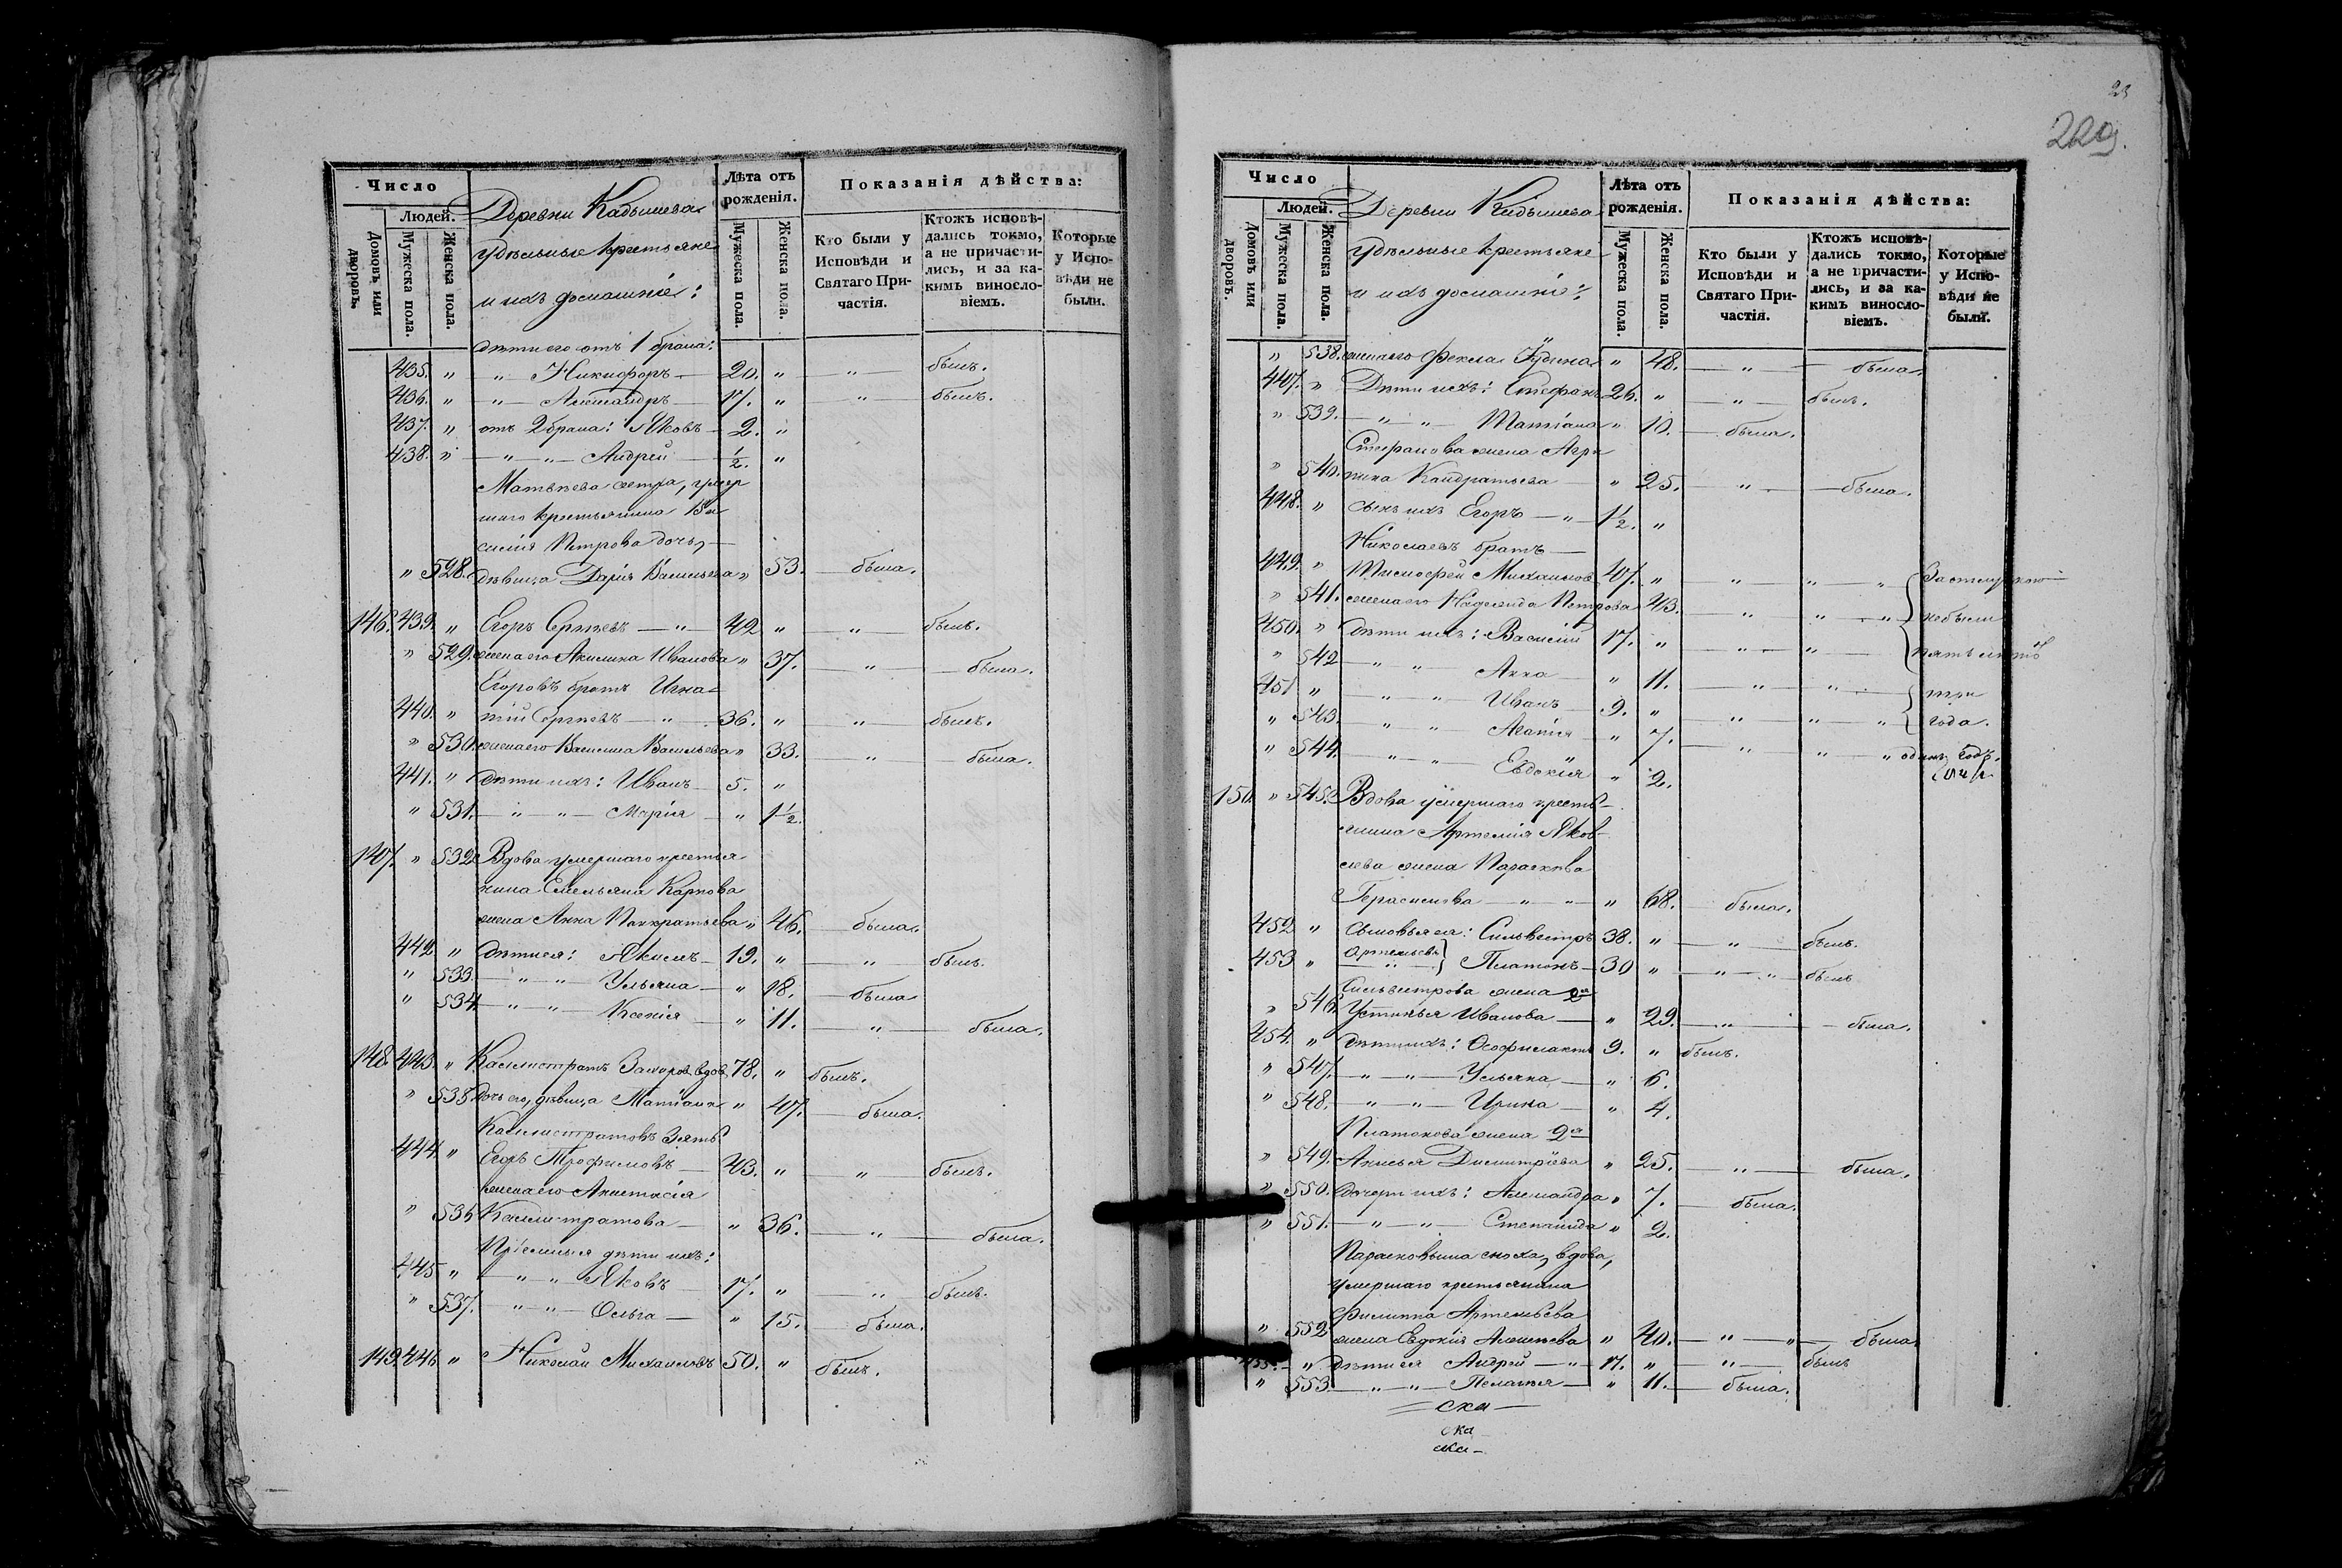 23
229.
Число
Людей.
Домовъ или дворовъ.
Мужеска пола.
Женска пола.
Деревни Кабышева
удѣльные крестьяне
и ихъ домашніе:
Лѣта отъ рожденія.
Мужеска пола.
Женска пола.
Показанія дѣйства:
Кто были у Исповѣди и Святаго Причастія.
Ктожъ исповѣдались токмо, а не причастились, и за какимъ винословіемъ.
Которые у Исповѣди не были.
дѣти его отъ 1 брака:
435. " " — Никифоръ — 20. " — " — былъ.
436. " " — Александръ — 17. " — " — былъ.
437. " отъ 2 брака: Яковъ — 2. "
438. " — " — " — Андрей — 1/2. "
Матвѣева сестра, умер
шаго крестьянина Ва
силія Петрова дочь, —
" 528. дѣвица Дарія Васильева " 53. — была.
146. 439. " Егоръ Сергѣевъ — " — 42 " — " — былъ.
" 529. жена его Акилина Иванова " 37. — " — была.
Егоровъ братъ Игна-
440. " тій Сергѣевъ — " — 36. " — " — былъ.
" 530. жена его Василиса Васильева " 33. — " — была.
441. " дѣти ихъ: Иванъ — 5. "
" 531. — " — " — Марія — " 1 1/2.
147. " 532. Вдова умершаго крестья
нина Емельяна Карпова
жена Анна Панкратьева " 46. — была.
442 " дѣти ея: Якимъ — 19. " — " — былъ.
" 533. — " — " — Ульяна — " 18. — была
" 534. — " — " — Ксенія — " 11. — " — была.
148. 443. " Каллистратъ Захаровъ вдов. 78. " былъ.
" 535 дочь его, дѣвица Татіана " 47. — была.
Каллистратовъ зять
444. " Егоръ Трофимовъ — 43. " — " — былъ.
жена его Анастасія
" 536 Каллистратова — " 36. — " — была.
Пріемныя дѣти ихъ:
445 " — " — " Яковъ — 17. " — " — былъ.
" 537. — " — " — Ольга — " 15. — была.
149. 446 " Николай Михайловъ 50. " былъ.
Число
Людей.
Домовъ или дворовъ.
Мужеска пола.
Женска пола.
Деревни Кабышева
удѣльные крестьяне
и ихъ домашніе:
Лѣта отъ рожденія.
Мужеска пола.
Женска пола.
Показанія дѣйства:
Кто были у Исповѣди и Святаго Причастія.
Ктожъ исповѣдались токмо, а не причастились, и за какимъ винословіемъ.
Которые у Исповѣди не были.
" 538. жена его Фекла Юдина " 48. — " — была.
447. " Дѣти ихъ: Стефанъ 26. " — " — былъ.
" 539. — " — " — Татіана " 10. — была.
Стефанова жена Агри
" 540. пина Кондратьева — " 25. — " — была.
448. " сынъ ихъ Егоръ — " — 1 1/2. "
Николаевъ братъ —
449. " Тимофей Михайловъ 47. " — " — " — "
" 541. жена его Надежда Петрова 43. — " — " — " не были
450. " дѣти ихъ: Василій 17. " — " — " — пять лѣтъ
" 542 — " — " — Анна — " 11. — " — " — три
451 " — " — " — Иванъ — 9. " — " — " — " года.
" 543. — " — " — Агапія — " 7. — " — " — " одинъ годъ.
" 544. — " — " — Евдокія " 2.
150. " 545. Вдова умершаго кресть-
янина Артемія Яков-
лева жена Параскева
Герасимова — " — " — " 68. — была.
452 " сыновья ея: Сильвестръ 38. " — " — былъ.
453 " Артемьевы — " — Платонъ — 30 " — " — " — былъ
Сильвестрова жена 2я
" 546. Устинья Иванова — " 29. — " — была.
454. " дѣти ихъ: Ѳеофилактъ 9. " былъ.
" 547. — " — " — Ульяна — " 6.
" 548. — " — " — Ирина — " 4.
Платонова жена 2я
" 549. Анисья Димитріева " 25. — " — была.
" 550. дочери ихъ: Александра " 7. — была.
" 551. — " — " — Степанида " 2.
Параскевьина сноха, вдова,
умершаго крестьянина
Филиппа Артемьева
" 552 жена Евдокія Алексѣева " 40. — " — " — была.
455. " дѣти ея Андрей — " — 17. " — " — былъ
" 553. — " — " — Пелагея — " 11. — была.
ска
ска
ска